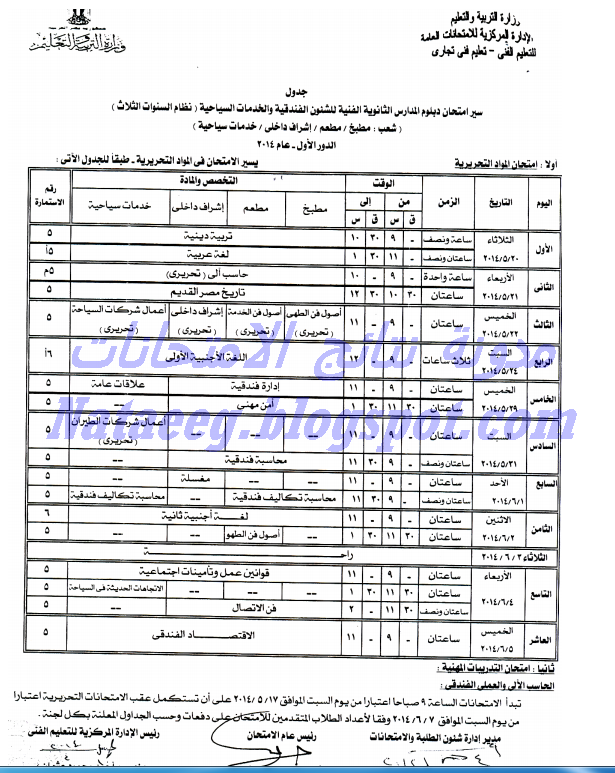 وزارة التربية والتعليم
الإدارة المركزية للامتحانات العامة
للتعليم الفنى - تعليم فنى تجارى
وزارة التربية والتعليم
جدول
سير امتحان دبلوم المدارس الثانوية الفنية للشئون الفندقية والخدمات السياحية ( نظام السنوات الثلاث )
( شعب : مطبخ / مطعم / إشراف داخلى / خدمات سياحية )
الدور الأول - عام ٢٠١٤
أولا : امتحان المواد التحريرية
يسير الامتحان فى المواد التحريرية - طبقا للجدول الآتى :
اليوم التاريخ الزمن الوقت التخصص والمادة رقم الاستمارة
من إلى
ق س ق س مطبخ مطعم إشراف داخلى خدمات سياحية
الأول الثلاثاء ٢٠١٤/٥/٢٠ ساعة ونصف - ٩ ٣٠ ١٠ تربية دينية ٥
ساعتان ونصف - ١١ ٣٠ ١ لغة عربية ٥أ
الثانى الأربعاء ٢٠١٤/٥/٢١ ساعة واحدة - ٩ - ١٠ حاسب آلى (تحريرى) ٥م
ساعتان ٣٠ ١٠ ٣٠ ١٢ تاريخ مصر القديم ٥
الثالث الخميس ٢٠١٤/٥/٢٢ ساعتان - ٩ - ١١ أصول فن الطهى (تحريرى) أصول فن الخدمة (تحريرى) إشراف داخلى (تحريرى) أعمال شركات السياحة (تحريرى) ٥
الرابع السبت ٢٠١٤/٥/٢٤ ثلاث ساعات - ٩ - ١٢ اللغة الأجنبية الأولى ٦أ
الخامس الخميس ٢٠١٤/٥/٢٩ ساعتان - ٩ - ١١ إدارة فندقية علاقات عامة ٥
ساعتان ٣٠ ١١ ٣٠ ١ أمن مهنى -- ٥
السادس السبت ٢٠١٤/٥/٣١ ساعتان - ٩ - ١١ -- -- -- أعمال شركات الطيران (تحريرى) ٥
ساعتان ونصف - ٩ ٣٠ ١١ محاسبة فندقية -- ٥
السابع الأحد ٢٠١٤/٦/١ ساعتان - ٩ - ١١ -- -- مغسلة -- ٥
ساعتان ونصف - ٩ ٣٠ ١١ محاسبة تكاليف فندقية -- محاسبة تكاليف فندقية ٥
الثامن الاثنين ٢٠١٤/٦/٢ ساعتان - ٩ - ١١ لغة أجنبية ثانية ٦
ساعتان ٣٠ ١١ ٣٠ ١ -- أصول فن الطهو -- -- ٥
الثلاثاء ٢٠١٤/٦/٣ راحة
التاسع الأربعاء ٢٠١٤/٦/٤ ساعتان - ٩ - ١١ قوانين عمل وتأمينات اجتماعية ٥
ساعتان ٣٠ ١١ ٣٠ ١ -- -- -- الاتجاهات الحديثة فى السياحة ٥
ساعتان ونصف ٣٠ ١١ - ٢ فن الاتصال -- ٥
العاشر الخميس ٢٠١٤/٦/٥ ساعتان - ٩ - ١١ الاقتصاد الفندقى ٥
ثانيا : امتحان التدريبات المهنية :
الحاسب الآلى والعملى الفندقى :
تبدأ الامتحانات الساعة ٩ صباحا اعتبارا من يوم السبت الموافق ٢٠١٤/٥/١٧ على أن تستكمل عقب الامتحانات التحريرية اعتبارا
من يوم السبت الموافق ٢٠١٤/٦/٧ وفقا لأعداد الطلاب المتقدمين للامتحان على دفعات وحسب الجداول المعلنة بكل لجنة .
مدير إدارة شئون الطلبة والامتحانات
رئيس عام الامتحان
رئيس الإدارة المركزية للتعليم الفنى
مدونة نتائج الامتحانات
Nataeeg.blogspot.com